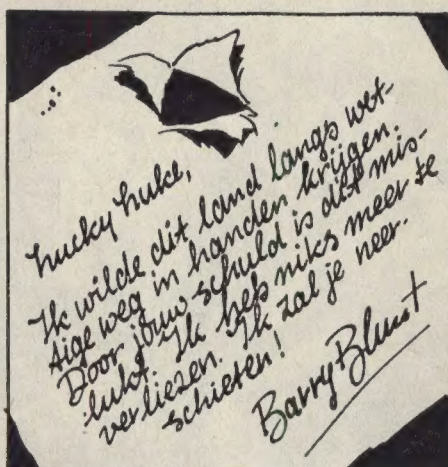 Lucky Luke,
Ik wilde dit land langs wet-
tige weg in handen krijgen.
Door jouw schuld is dit mis-
lukt. Ik heb niks meer te
verliezen. Ik zal je neer-
schieten!
Barry Blunt